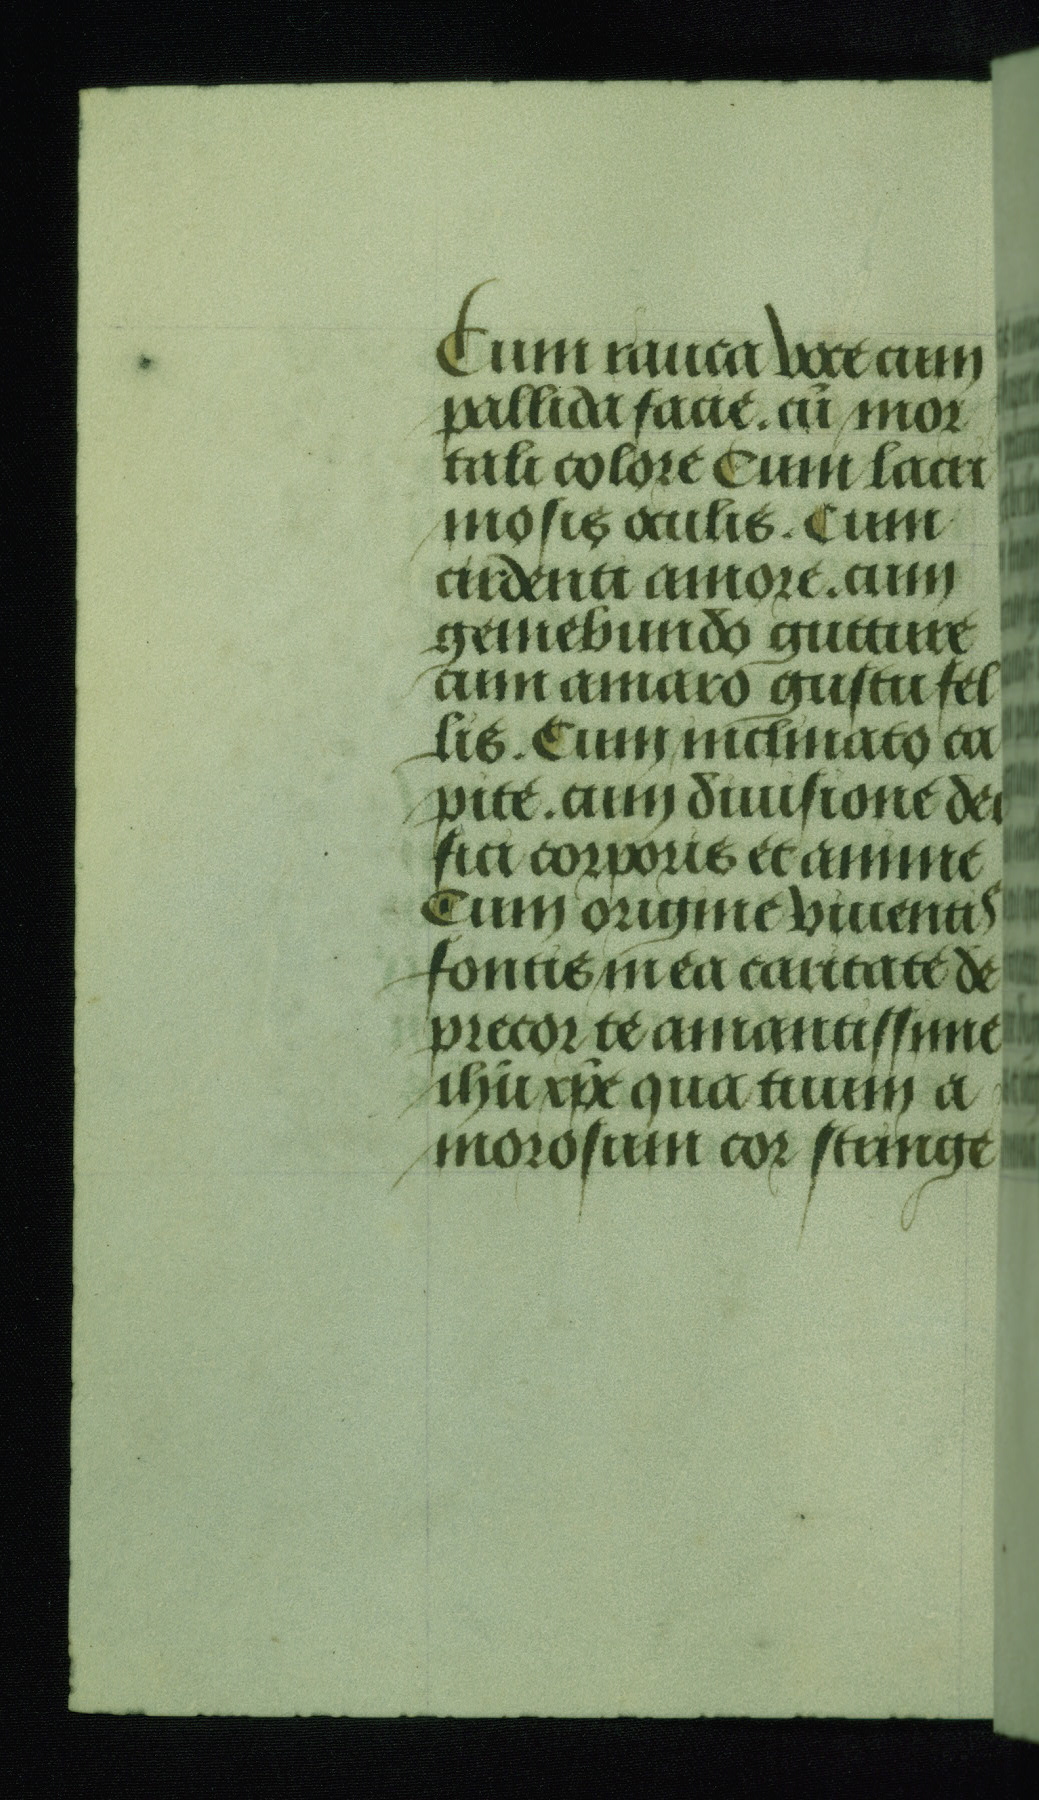 Cum rauca voce cum
pallida facie. cū mor
tali colore Cum lacri
mosis oculis. Cum
ardenti amore. cum
gemebundo gutture
cum amaro gustu fel
lis. Cum inclinato ca
pite. cum diuisione dei
fici corporis et anime
Cum origine viuentis
fontis in ea caritate de
precor te amantissime
ihū xpe qua tuum a
morosum cor stringe